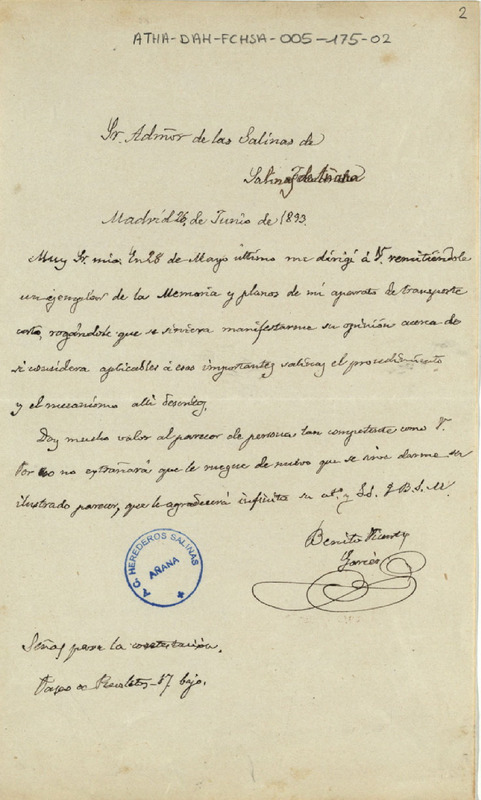 2
ATHA-DAH-FCHSA-005-175-02
Sr. Admõr de las Salinas de
Salinas de Añana
Madrid 26, de Junio de 1893.
Muy Sr. mio: En 28 de Mayo último me dirigí á V. remitiéndole
un ejemplar de la Memoria y planos de mi aparato de transporte
rogándole que se sirviera manifestarme su opinión acerca de
si considera aplicables á esas importantes salinas el procedimiento
y el mecanismo alli descritos.
Doy mucho valor al parecer de persona tan competente como V.
Por eso no extrañará que le ruegue de nuevo que se sirva darme su
ilustrado parecer, que le agradecerá infinito su at.º y S.S. Q.B.S.M.
Benito Vicente
Garcés
A.C. HEREDEROS SALINAS
AÑANA
Señas para la contestación.
Paseo de Recoletos-17 bajo.